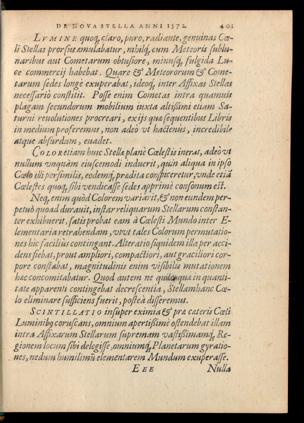 DE NOVA STELLA ANNI 1572. 401
LVMINE quoq; claro, puro, radiante, genuinas Cœ-
li Stellas prorsus æmulabatur, nihilq; cum Meteoris sublu-
naribus aut Cometarum obtusiore, minusq; fulgida Lu-
ce commercij habebat. Quare & Meteororum & Come-
tarum sedes longè exuperabat, ideoq; inter Affixas Stellas
necessariò constitit. Posse enim Cometas intra quamuis
plagam secundorum mobilium iuxta altißimi etiam Sa-
turni reuolutiones procreari, ex ijs quæ sequentibus Libris
in medium proferemus, non adeò vt hactenus, incredibile
atque absurdum, euadet.
COLOR etiam huic Stellæ planè Cœlestis inerat, adeò vt
nullum vnquam eiuscemodi induerit, quin aliqua in ipso
Cœlo illi persimilis, eodemq; prædita conspiceretur, vnde etiã
Cœlestes quoq; sibi vendicasse sedes apprimè consonum est.
Neq; enim quòd Colorem variârit, & non eundem per-
petuò quoad durauit, instar reliquarum Stellarum constan-
ter exhibuerit, satis probat eam à Cœlesti Mundo inter E-
lementaria retrahendam, vtut tales Colorum permutatio-
nes hic faciliùs contingant. Alteratio siquidem illa per acci-
dens fiebat, prout ampliori, compactiori, aut graciliori cor-
pore constabat, magnitudinis enim visibilis mutationem
hæc concomitabatur. Quod autem ne quicquam in quanti-
tate apparenti contingebat decrescentia, Stellam hanc Cœ-
lo eliminare sufficiens fuerit, posteà disseremus.
SCINTILLATIO insuper eximia & præ cæteris Cœli
Luminibq; coruscans, omnium apertißimè ostendebat illam
intra Affixarum Stellarum supremam vastißimamq; Re-
gionem locum sibi delegisse, omniumq; Planetarum gyratio-
nes, nedum humilimũ elementarem Mundum exuperasse.
E E E Nulla